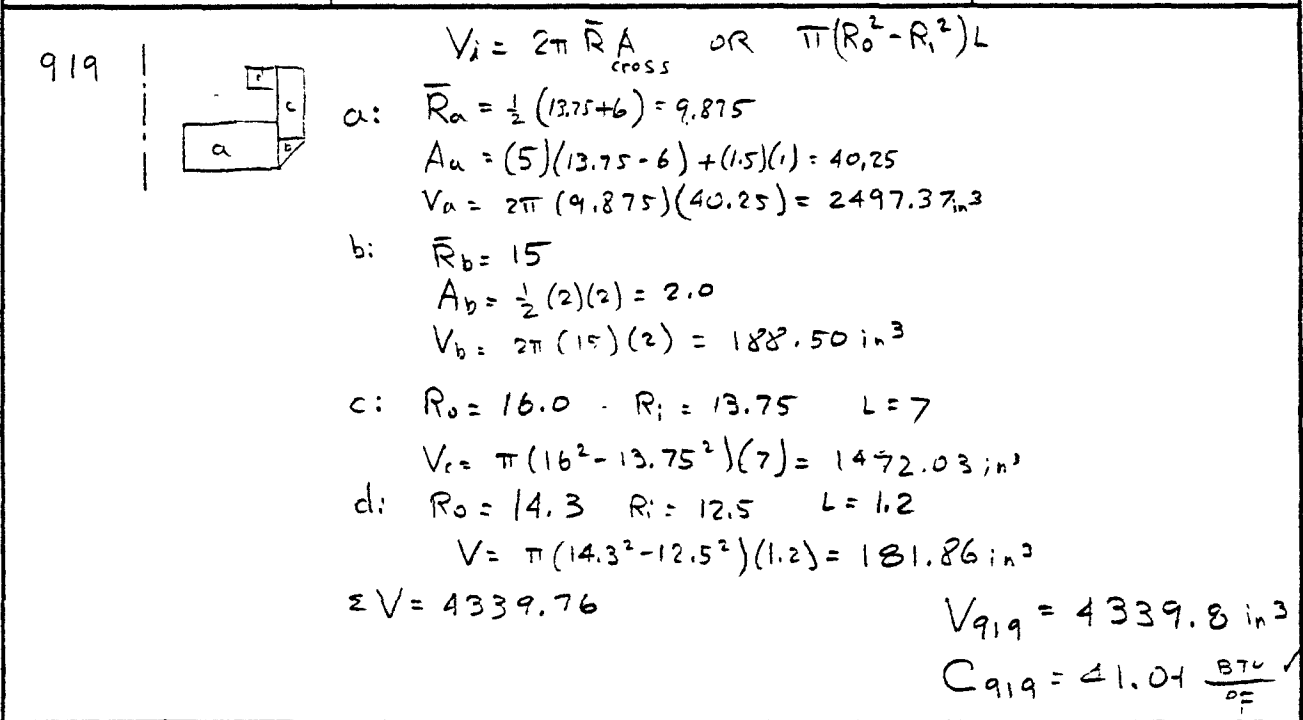 V_i = 2π R̄ A_cross OR π(R_o² - R_i²)L
919
a
c
a: R̄a = ½ (13.75+6) = 9.875
Aa = (5)(13.75-6) + (1.5)(1) = 40.25
Va = 2π (9.875)(40.25) = 2497.37 in³
b: R̄b = 15
Ab = ½ (2)(2) = 2.0
Vb = 2π (15)(2) = 188.50 in³
c: Ro = 16.0 Ri = 13.75 L = 7
Vc = π(16² - 13.75²)(7) = 1472.03 in³
d: Ro = 14.3 Ri = 12.5 L = 1.2
V = π(14.3² - 12.5²)(1.2) = 181.86 in³
ΣV = 4339.76
V919 = 4339.8 in³
C919 = 41.04 BTU/°F ✓